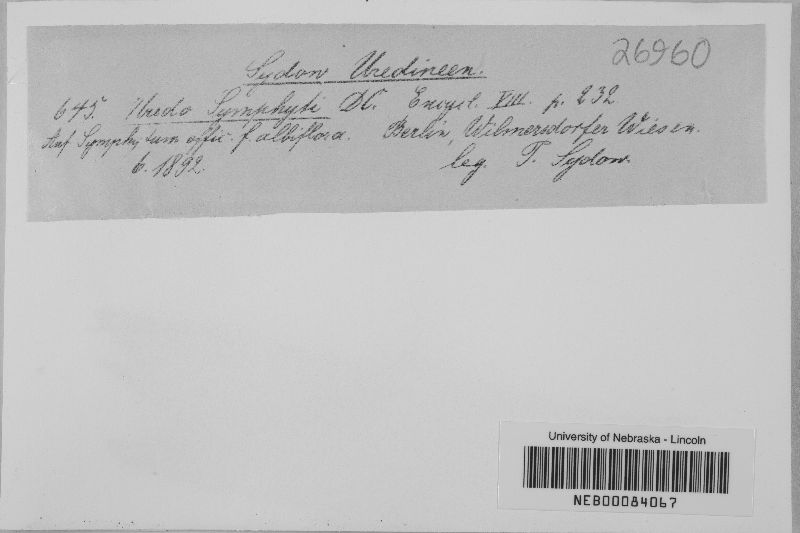 26960
Sydow Uredineen.
645. Uredo Symphyti DC. Encycl. VIII. p. 232
Auf Symphytum offic. f. albiflora. Berlin, Wilmersdorfer Wiesen.
6. 1892. leg. P. Sydow.
University of Nebraska - Lincoln
NEB00084067